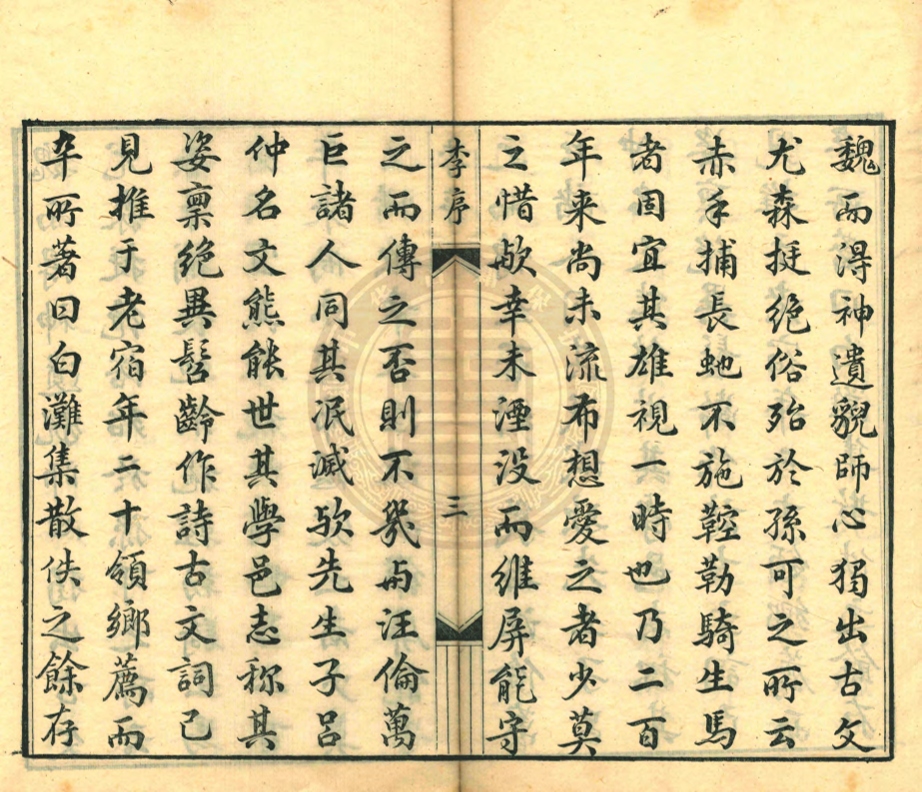 魏而得神遺貌師心獨出古文
尤森挺絶俗殆於孫可之所云
赤手捕長虵不施鞚勒騎生馬
者固宜其雄視一時也乃二百
年来尚未流布想愛之者少莫
之惜歟幸未湮没而維屏能守
李序
三
之而傳之否則不幾與汪倫萬
巨諸人同其冺滅歟先生子呂
仲名文熊能世其學邑志称其
姿禀絶異髫齡作詩古文詞已
見推于老宿年二十領鄉薦而
卒所著曰白灘集散佚之餘存